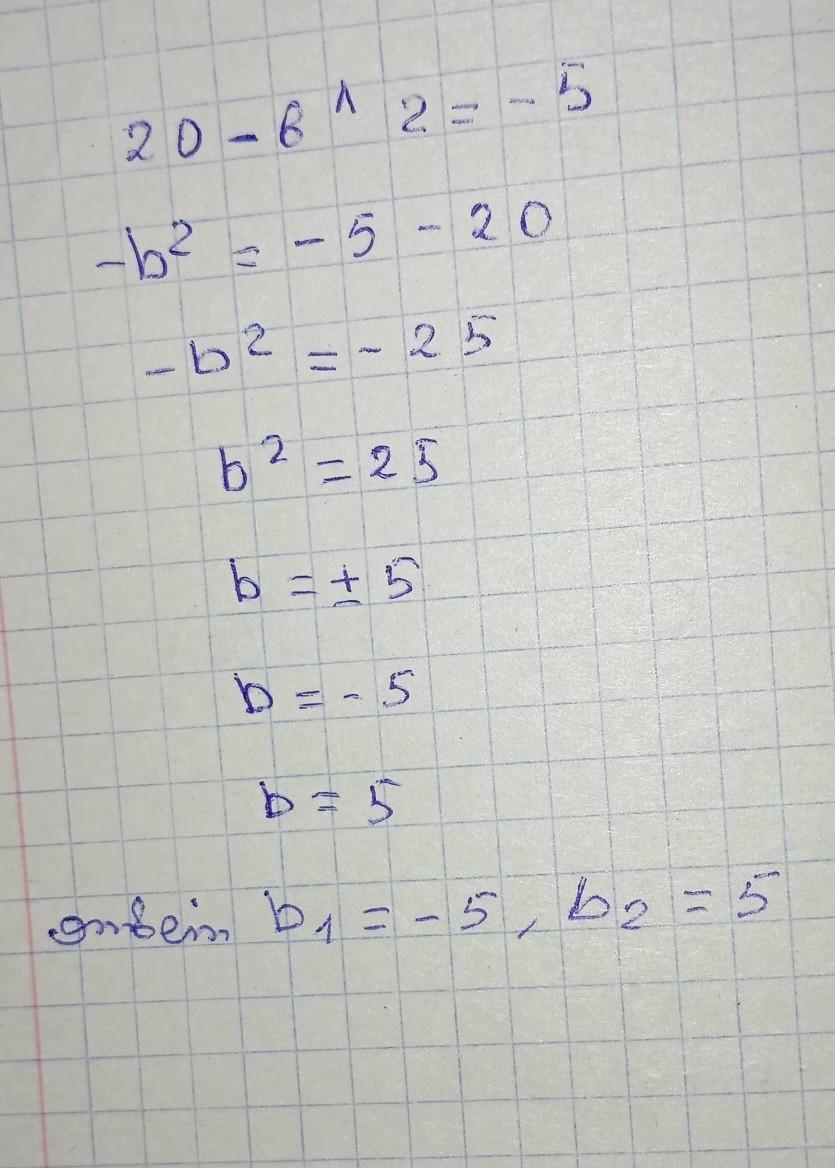 20 - в ^ 2 = - 5
-b² = - 5 - 20
-b² = - 25
b² = 25
b = ± 5
b = - 5
b = 5
ответ b₁ = - 5, b₂ = 5